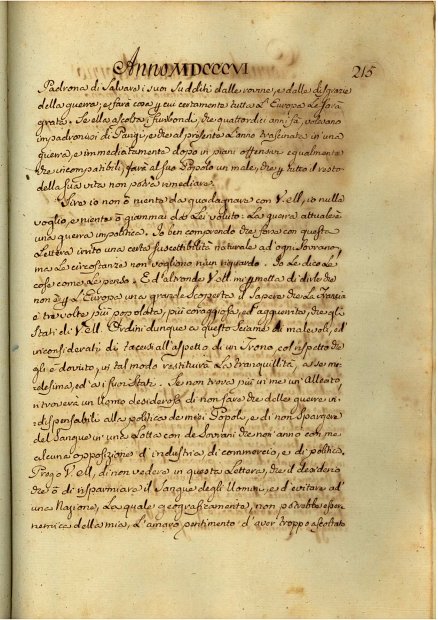 Anno MDCCCVI 215
Padrona di Salvare i suoi Sudditi dalle rovine, e dalle disgrazie
della guerra; e farà cosa p cui certamente tutta L'Europa Le sarà
grata. Se ella ascolta i furibondi, che quattordici anni fà, volevano
impadronirsi di Parigi, e che al presente L'anno trascinata in una
guerra, e immediatamente dopo in piani offensivi equalmente
che incompatibili, farà al suo Popolo un male, che p tutto il resto
della sua vita non potrà rimediare.
Sire io non ò niente da guadagnare con V.ell, io nulla
voglio, e niente ò giammai da Lei voluto. La guerra attuale è
una guerra impolitica. Io ben comprendo che forse con questa
Lettera irrito una certa suscettibilità naturale ad ogni Sovrano,
ma Le circostanze non vogliono niun riguardo. Io Le dico Le
cose come Le penso. Ed'altronde V.ell mi pmetta di dirle che
non è p L'Europa una grande Scoperta il Sapere che La Francia
è tre volte più popolata, più coraggiosa, ed'agguerrita, che gli
Stati di V.ell. Ordini dunque a questo sciame di malevoli, ed
inconsiderati di tacersi all'aspetto di un Trono, col rispetto che
gli è dovuto, in tal modo restituirà La tranquillità, a se me=
desima, ed'ai suoi Stati. Se non trova più in me un Alleato,
ritroverà un Uomo desideroso di non fare che delle guerre in=
dispensabili alla politica de miei Popoli, e di non spargere
del Sangue in una Lotta con de Sovrani che non'anno con me
alcuna opposizione d'industria, di commercio, e di politica.
Prego V.ell, di non vedere in questa Lettera, che il desiderio
che ò di risparmiare il Sangue degli Uomini, e d'evitare ad'
una Nazione, La quale geograficamente, non potrebbe esser
nemica della mia, L'amaro pentimento d'aver troppo ascoltato